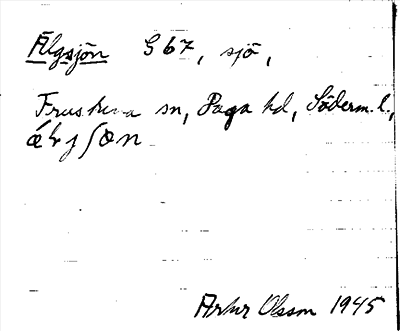 Älgsjön G 67, sjö,
Frustuna sn, Daga hd, Söderm.l.,
Artur Olsson 1945